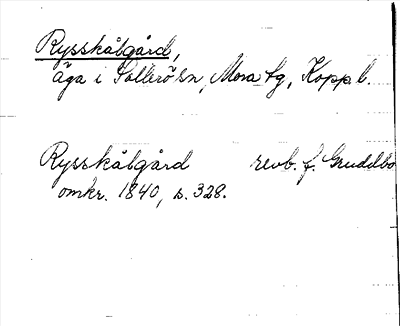 Rysskålgård,
äga i Sollerö sn, Mora tg, Kopp l.
Rysskålgård revb. f. Gruddbo
omkr. 1840, s. 328.